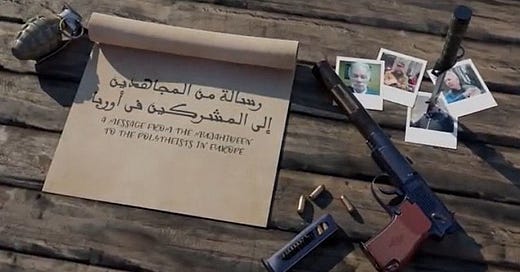 رسالة من المجاهدين
إلى المشركين في أوربا
A MESSAGE FROM THE MUJAHIDEEN
TO THE POLYTHEISTS IN EUROPE